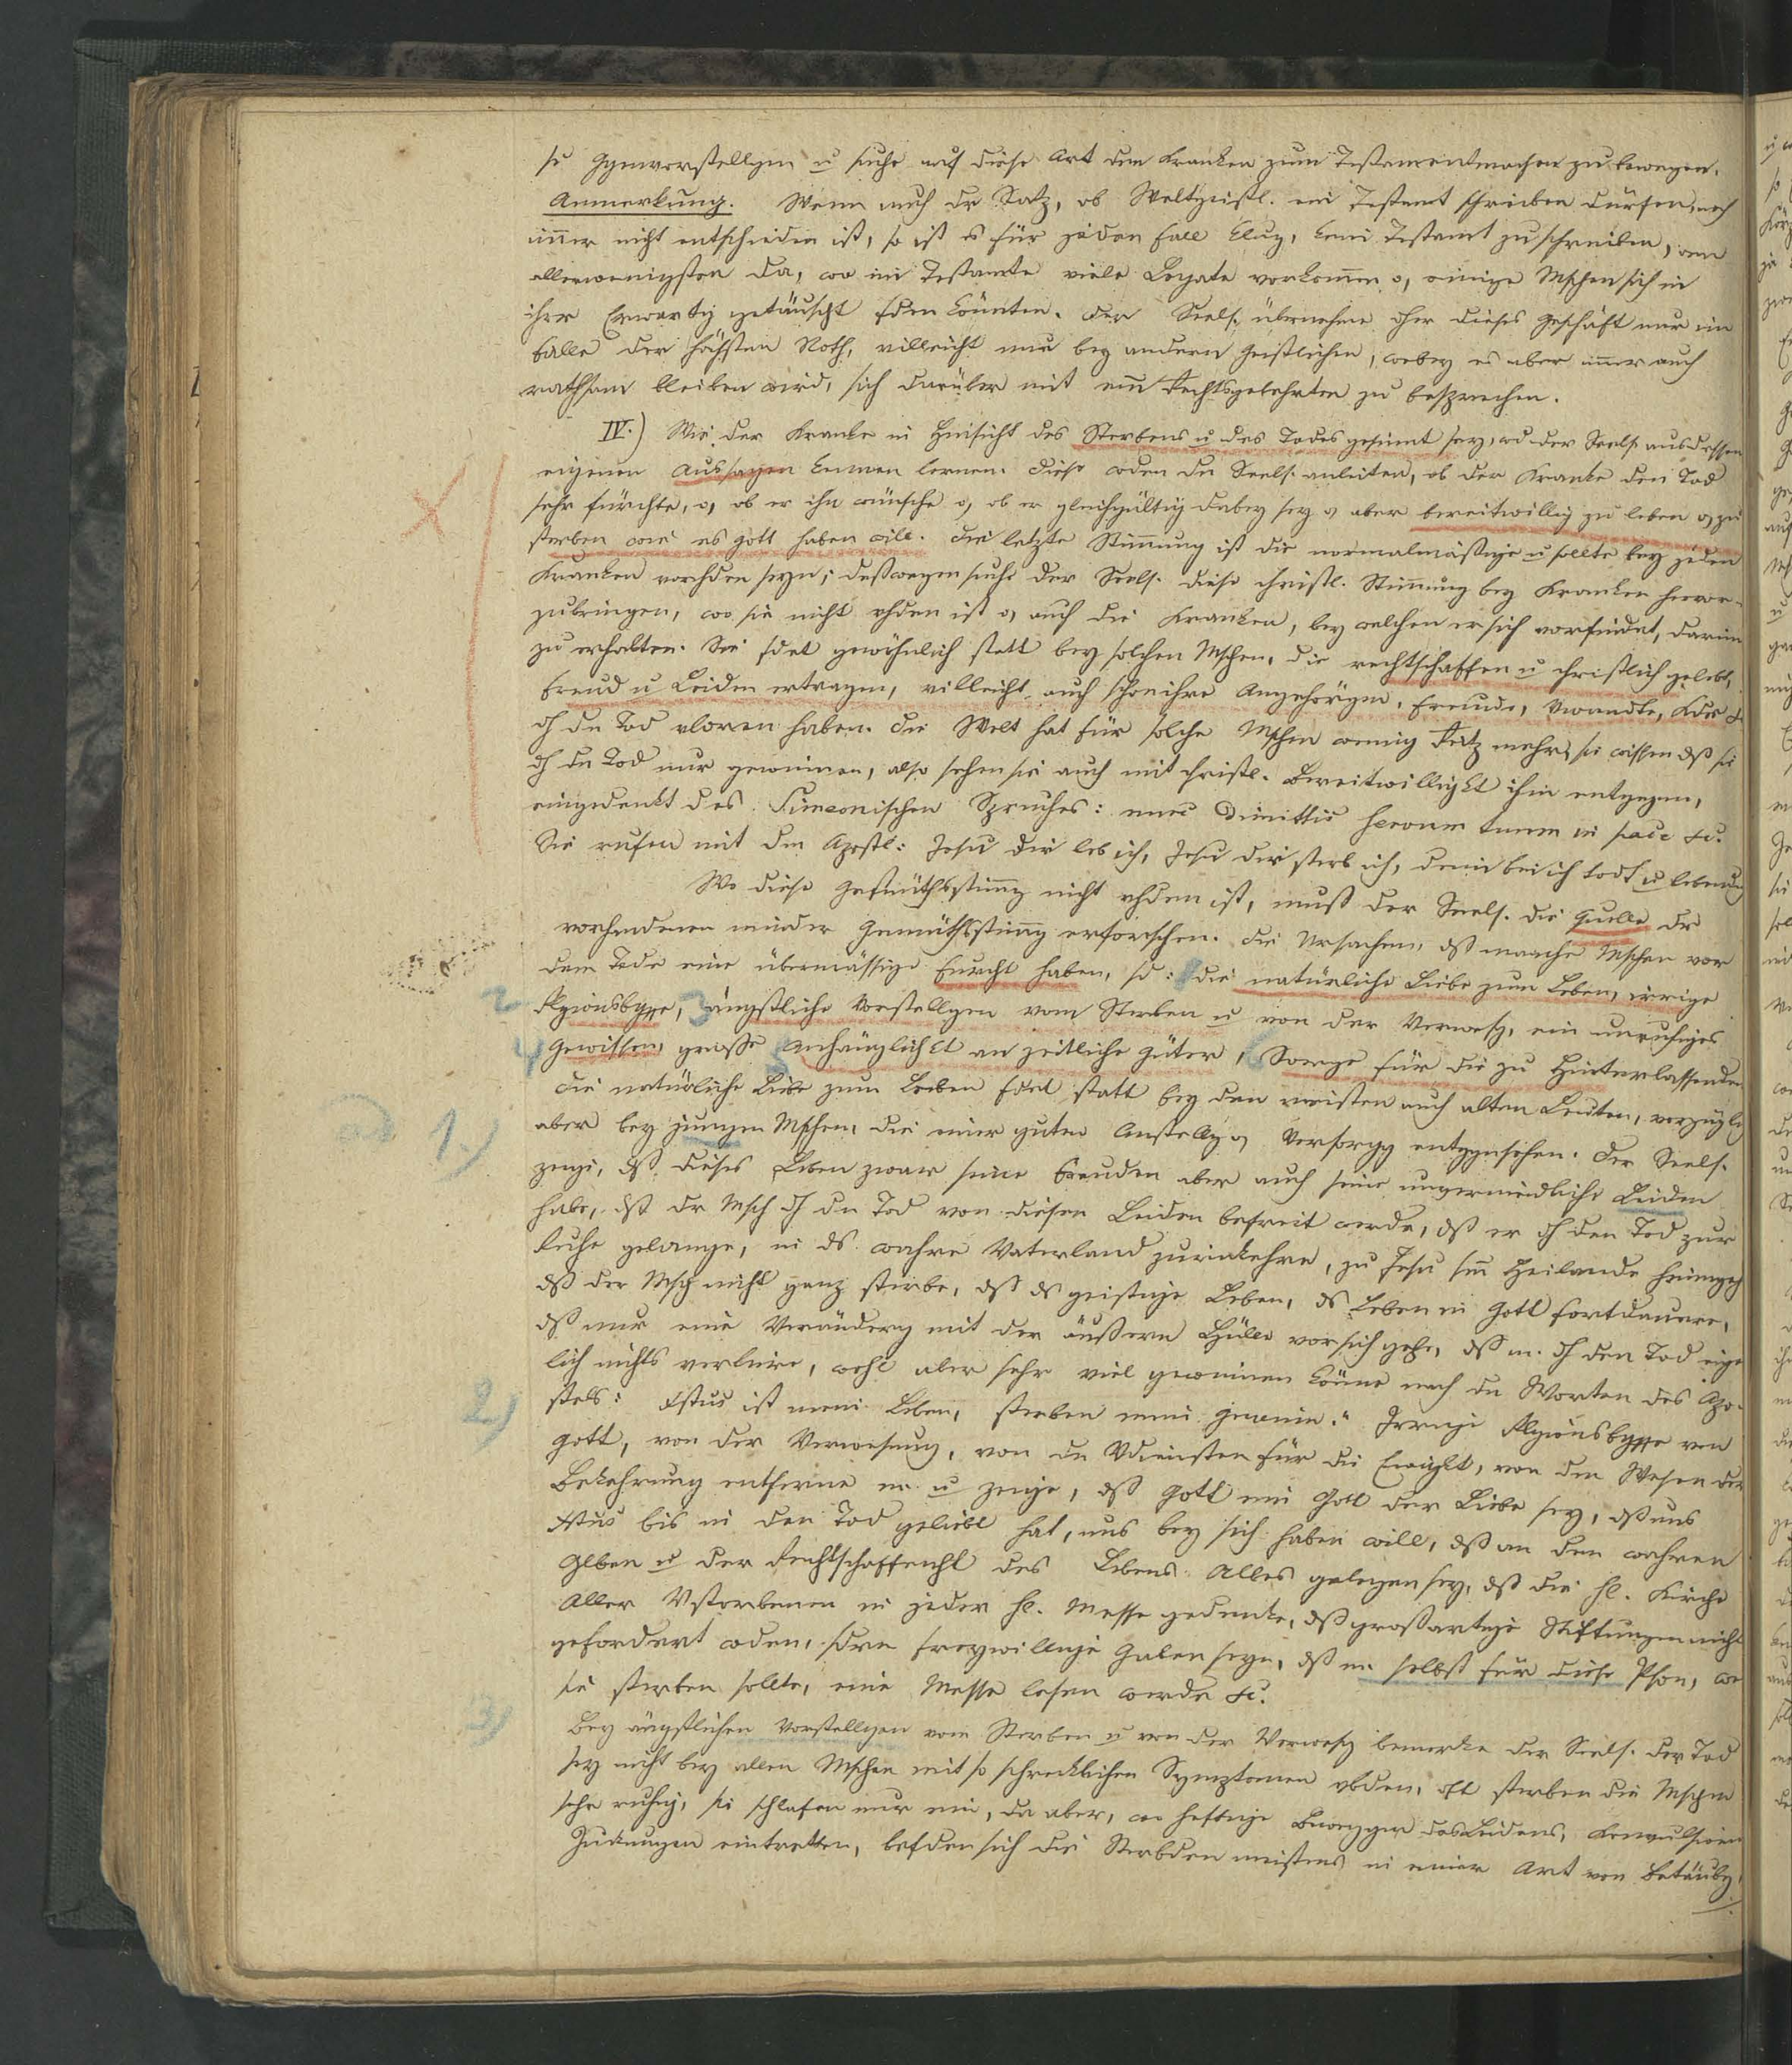 se Ggenvorstellgen u suche auf diese Art den Kranken zum Testamentmachen zu bewegen.
Anmerkung. Wenn auch dr Satz, ob Weltgeistl. ein Testamt schreiben dürfen, noch
immer nicht entschieden ist, so ist es für jeden Fall klug, kein Testamt zu schreiben, am
allerwenigsten da, wo im Testamte viele Legate vorkomen o, einige Mschen sich in
ihrer Erwartg getäuscht fden könnten. Der Seels. übernehme dher dieses Geschäft nur im
Falle der höchsten Noth, villeicht nur bey andern Geistlichen, wobey es aber imer auch
rathsam bleiben wird, sich darüber mit em Rechtsgelehrten zu besprechen.
IV.) Wie der Kranke in Hinsicht des Sterbens u des Todes gesinnt sey, wd der Seels. aus dessen
eigenen Aussagen kennen lernen. Diese wden den Seels. anleiten, ob der Kranke den Tod
sehr fürchte, o, ob er ihn wünsche o, ob er gleichgültig dabey sey o, aber bereitwillig zu leben o, zu
sterben wie es Gott haben will. Die letzte Stimmung ist die normalmäßige u sollte bey jeden
Kranken vorhden seyn; deßwegen suche der Seels. diese christl. Stimmung bey Kranken hervor-
zubringen, wo sie nicht vhden ist o, auch die Kranken, bey welchen er sich vorfindet, darin
zu erhalten. Sie fdet gewöhnlich statt bey solchen Mschen, die rechtschaffen u christlich gelebt,
Freud u Leiden ertragen, villeicht auch schon ihre Angehörgen, Freunde, Vwandte, Kder &
dh dn Tod vloren haben. Die Welt hat für solche Mschen wenig Reitz mehr, sie wissen dß sie
dh dn Tod nur gewinnen, also sehen sie auch mit christl. Bereitwilligkt ihm entgegen,
eingedenkt des Simeonischen Spruches: nunc dimittis servum tuum in pace &c.
Sie rufen mit dem Apostl: Jesu dir leb ich, Jesu dir sterb ich, dein bin ich todt u lebendig
Wo diese Gemüthsstimg nicht vhden ist, muß der Seels. die Quelle dr
vorhandenen minder Gemüthsstimg erforschen. Die Ursachen, dß manche Mschen vor
dem Tode eine übermässige Furcht haben, sd: 1 die natürliche Liebe zum Leben, irrige
2 Rlgionsbgffe, 3 ängstliche Vorstellgen vom Sterben u von der Verwesg, ein unruhiges
4 Gewissen, grosse 5 Anhänglichkt an zeitliche Güter, 6 Sorge für die zu Hinterlassenden
Die natürliche Liebe zum Leben fdet statt bey den meisten auch alten Leuten, vorzügli
ad 1.) aber bey jungen Mschen, die einer guten Anstellg o, Versorgg entggnsehen. Der Seels.
zeige, dß dieses Leben zwar seine Freuden aber auch seine unvermeidliche Leiden
habe, dß dr Msch dh dn Tod von diesen Leiden befreit werde, dß er dh den Tod zur
Ruhe gelange, in ds wahre Vaterland zurückkehre, zu Jesu sm Heilande heimgeh
dß der Msch nicht ganz sterbe, dß ds geistige Leben, ds Leben in Gott fortdauere,
dß nur eine Veränderg mit der äußern Hülle vor sich gehe, dß m. dh den Tod eige
lich nichts verliere, wohl aber sehr viel gewinnen könne nach dn Worten des Apo-
2.) stels: Xstus ist mein Leben, sterben mein Gewinn." Irrige Rlgionsbgffe von
Gott, von der Verwesung, von dn Vdiensten für die Ewigkt, von dem Wesen der
Bekehrung entferne m. u zeige, dß Gott ein Gott der Liebe sey, dß uns
Xstus bis in den Tod geliebt hat, uns bey sich haben will, dß an dem wahren
Glben u der Rechtschaffenht des Lebens Alles gelegen sey, dß die hl. Kirche
Aller Vstorbenen in jeder hl. Messe gedenke, dß großartige Stiftungen nicht
gefordert wden, sdrn freywillige Gaben seyn, dß m. selbst für diese Pson, we
sie sterben sollte, eine Messe lesen werde &c.
3) Bey ängstlichen Vorstellgen vom Sterben u von der Verwesg bemerke der Seels. der Tod
sey nicht bey allen Mschen mit so schrecklichen Symptomen vbden, oft sterben die Mschen
sehr ruhig, sie schlafen nur ein, da aber, wo heftige Bewegger des Leidens, Konvulsionen
Zuckungen eintretten, befden sich die Sterbden meistens in einer Art von Betäubg,